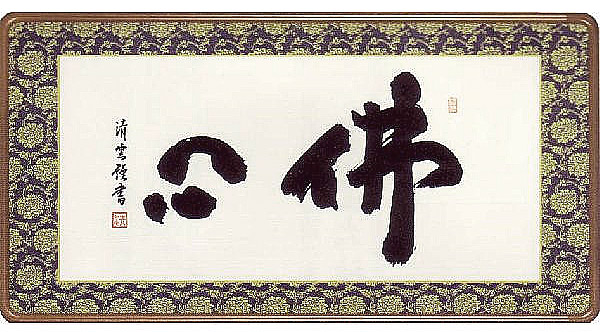 佛心
清雲書